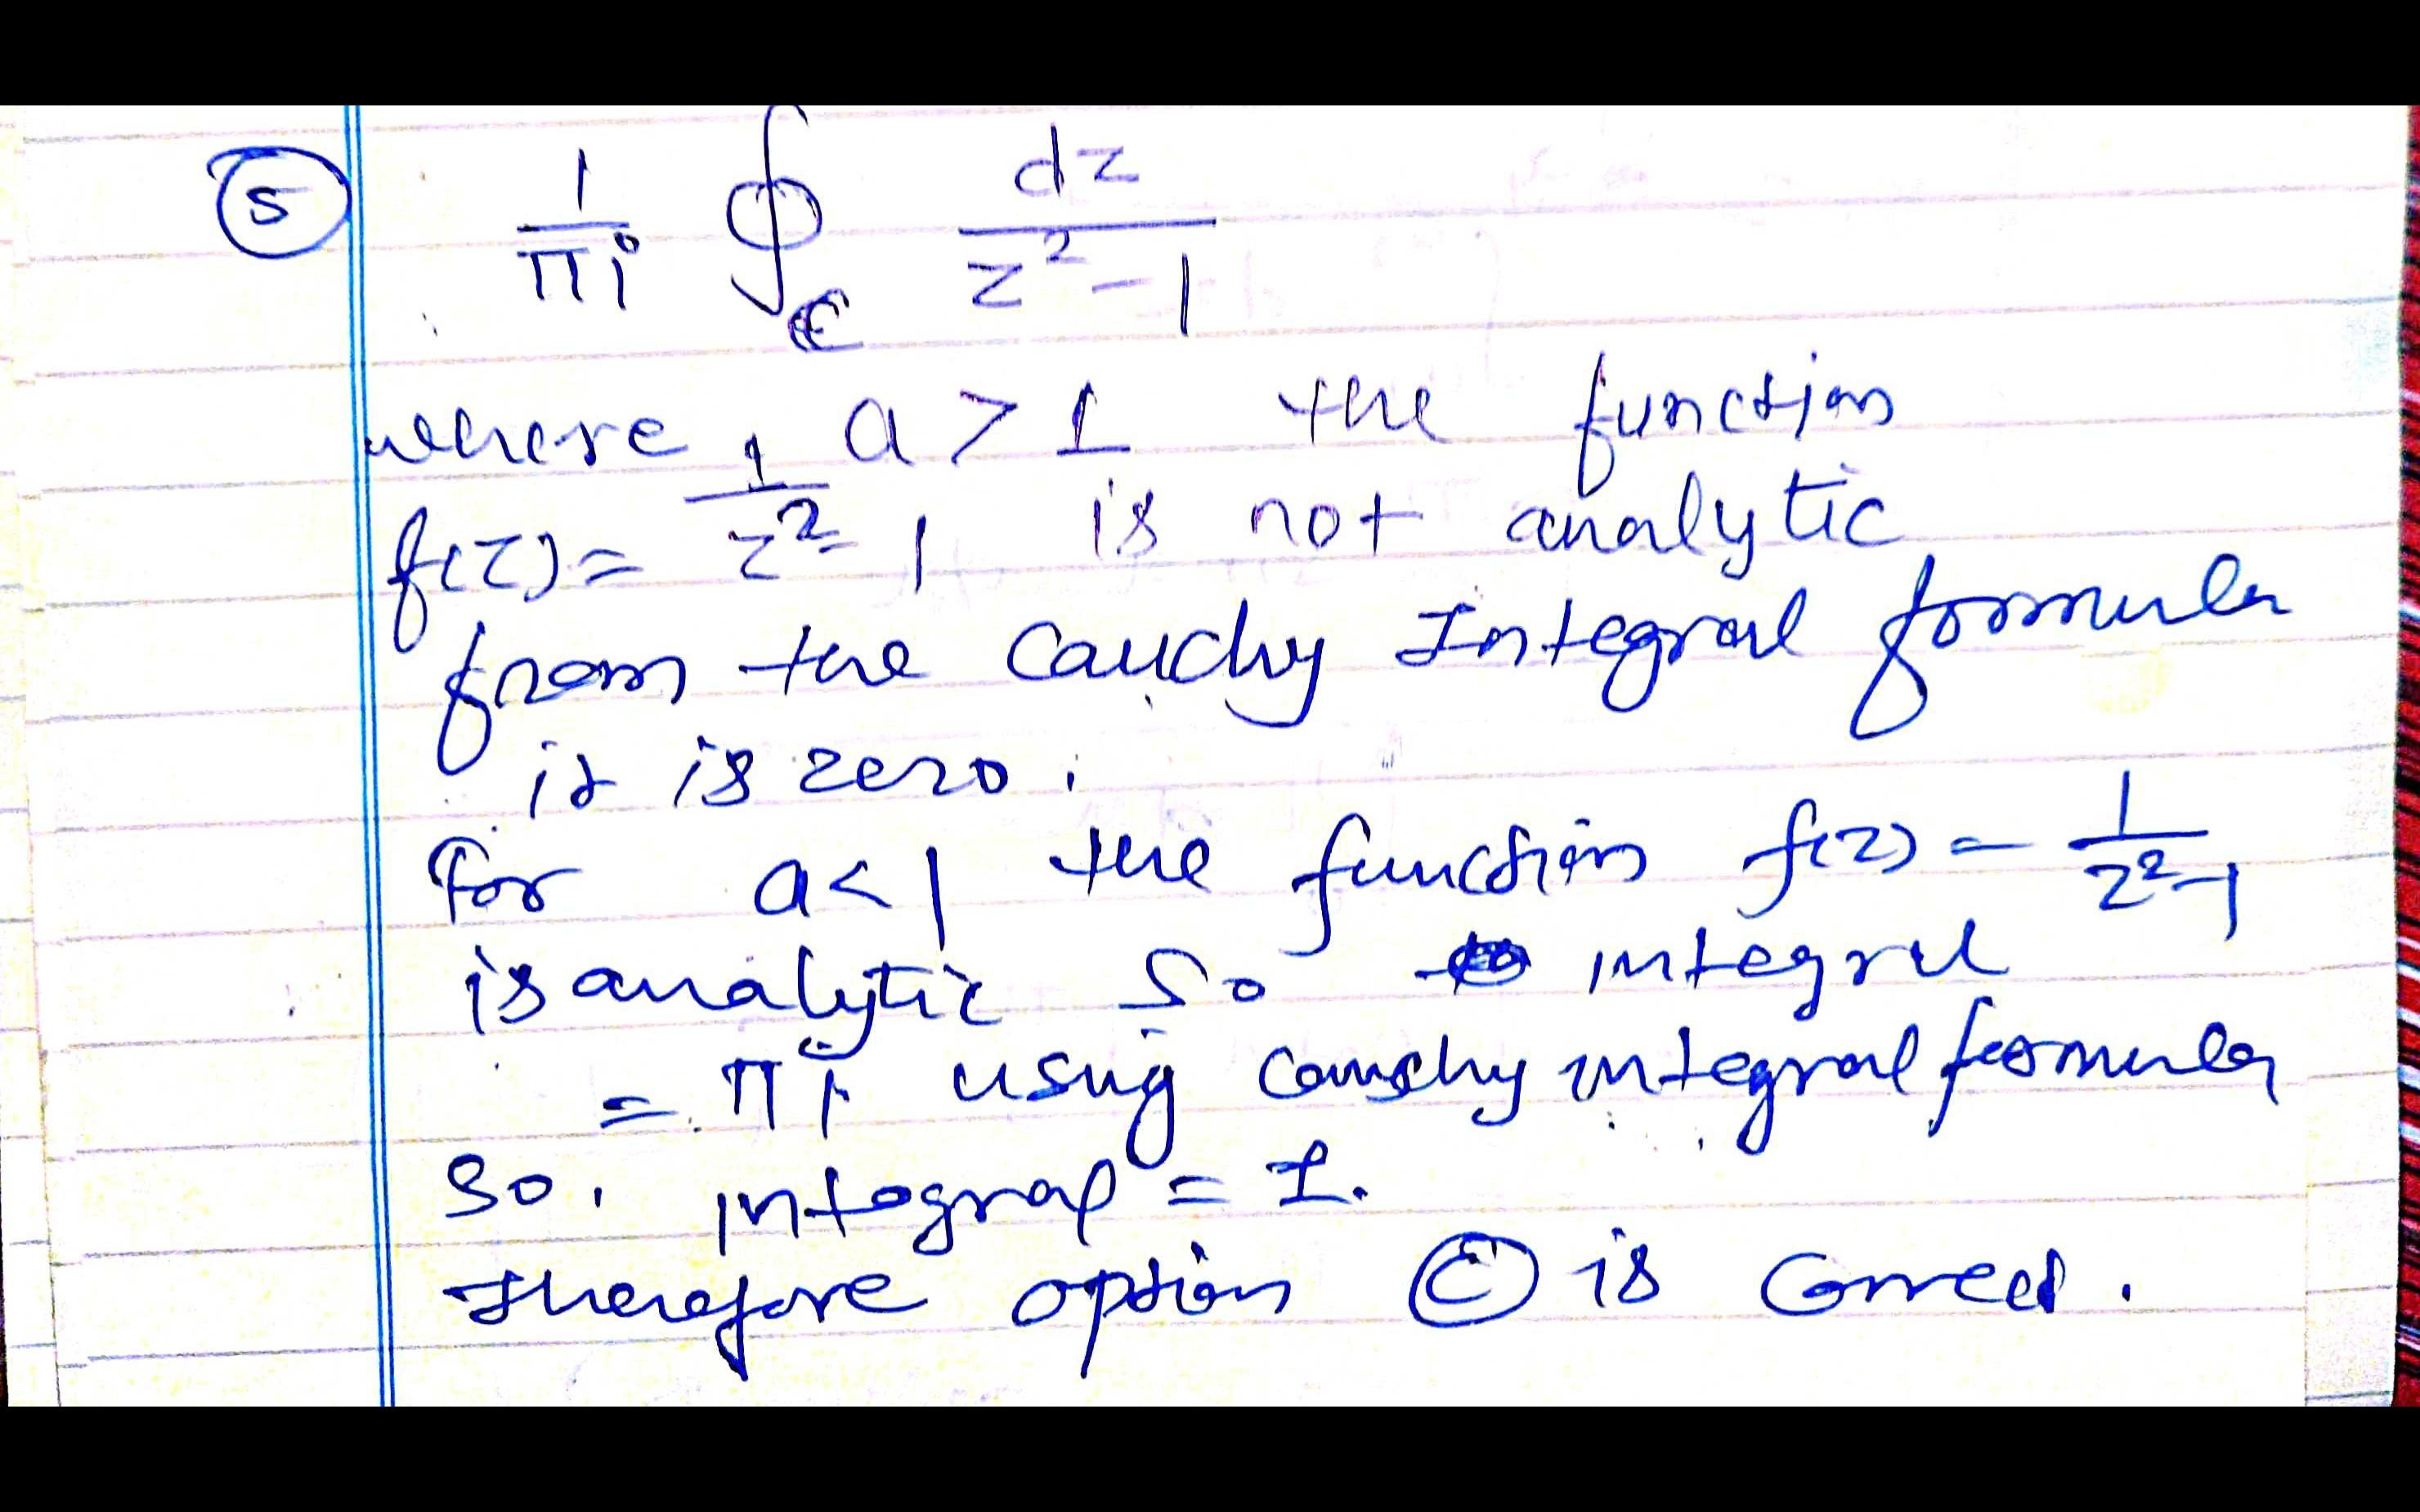 ⑤ 1/πi ∮_C dz/z²-1
where, a > 1 the function
f(z) = 1/z²-1 is not analytic
from the Cauchy Integral formula
it is zero.
For a < 1 the function f(z) = 1/z²-1
is analytic So integral
= πi using Cauchy integral formula
So. integral = 1.
therefore option Ⓒ is correct.